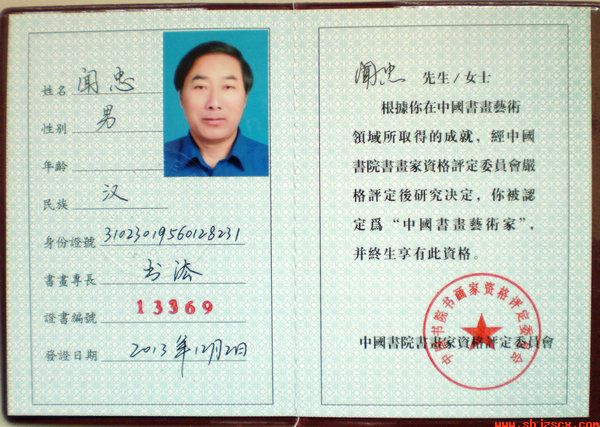 姓名 闻忠
性别 男
年齡
民族 汉
身份證號 31023019560128231
書畫專長 书法
證書編號 13369
發證日期 2013年12月2日
闻忠 先生/女士
根據你在中國書畫藝術
領域所取得的成就，經中國
書院書畫家資格評定委員會嚴
格評定後研究决定，你被認
定爲“中國書畫藝術家”，
并終生享有此資格。
中國書院書畫家資格評定委員會
中國书院书画家资格评定委员会
www.shjzscx.com